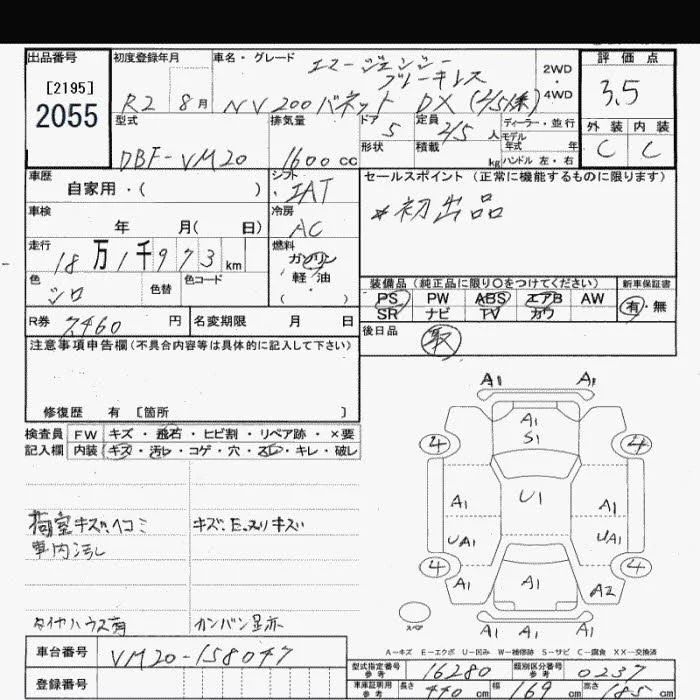 出品番号
[2195]
2055
初度登録年月
R2 8月
車名・グレード
エマージェンシー
ブレーキレス
NV200バネット DX (2/5人乗)
2WD
・
4WD
評価点
3.5
外装 内装
C C
型式
DBF-VM20
排気量
1600cc
ドア
5
形状
定員
2/5人
積載 kg
ディーラー・並行
モデル
年式 年
ハンドル 左・右
車歴
自家用・( )
シフト
IAT
セールスポイント (正常に機能するものに限ります)
*初出品
車検
年 月( 日)
冷房
AC
走行
18万1千973km
燃料
ガソリン
軽・油
・
( )
色
シロ
色替
色コード
装備品 (純正品に限り○をつけてください)
新車保証書
PS PW ABS エアB AW
SR ナビ TV カワ
有・無
R券 7,460円
名変期限 月 日
後日品
取
注意事項申告欄(不具合内容等は具体的に記入して下さい)
修復歴 有 [箇所 ]
検査員
記入欄
FW キズ・飛石・ヒビ割・リペア跡・×要
内装 キズ・汚レ・コゲ・穴・スレ・キレ・破レ
A1 A1
A1
S1
4 4
A1 U1 A1
UA1 UA1
4 4
A1 A1 A2
A1 A1 A1
スペア
荷室キズ、ヘコミ
キズ、E、スリキズ
車内汚レ
タイヤハウス有
カンバン是亦
A…キズ E…エクボ U…凹み W…補修跡 S…サビ C…腐食 XX…交換済
車台番号
VM20-158047
登録番号
型式指定番号
参考
16280
類別区分番号
参考
0237
車庫証明用
参考
長さ 440cm
幅 169cm
高さ 185cm